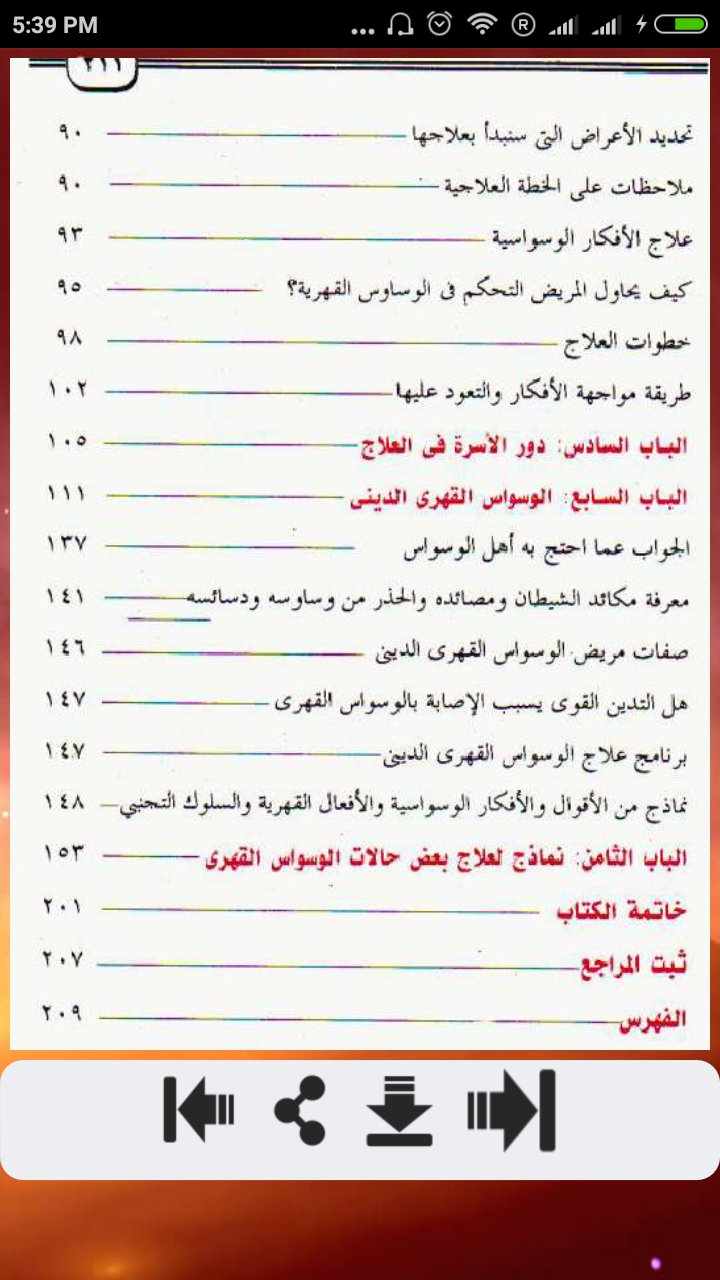 5:39 PM
٢١١
تحديد الأعراض التى سنبدأ بعلاجها ٩٠
ملاحظات على الخطة العلاجية ٩٠
علاج الأفكار الوسواسية ٩٣
كيف يحاول المريض التحكم فى الوساوس القهرية؟ ٩٥
خطوات العلاج ٩٨
طريقة مواجهة الأفكار والتعود عليها ١٠٢
الباب السادس: دور الأسرة فى العلاج ١٠٥
الباب السابع: الوسواس القهرى الدينى ١١١
الجواب عما احتج به أهل الوسواس ١٣٧
معرفة مكائد الشيطان ومصائده والحذر من وساوسه ودسائسه ١٤١
صفات مريض الوسواس القهرى الدينى ١٤٦
هل التدين القوى يسبب الإصابة بالوسواس القهرى ١٤٧
برنامج علاج الوسواس القهرى الدينى ١٤٧
نماذج من الأقوال والأفكار الوسواسية والأفعال القهرية والسلوك التجنبي ١٤٨
الباب الثامن: نماذج لعلاج بعض حالات الوسواس القهرى ١٥٣
خاتمة الكتاب ٢٠١
ثبت المراجع ٢٠٧
الفهرس ٢٠٩